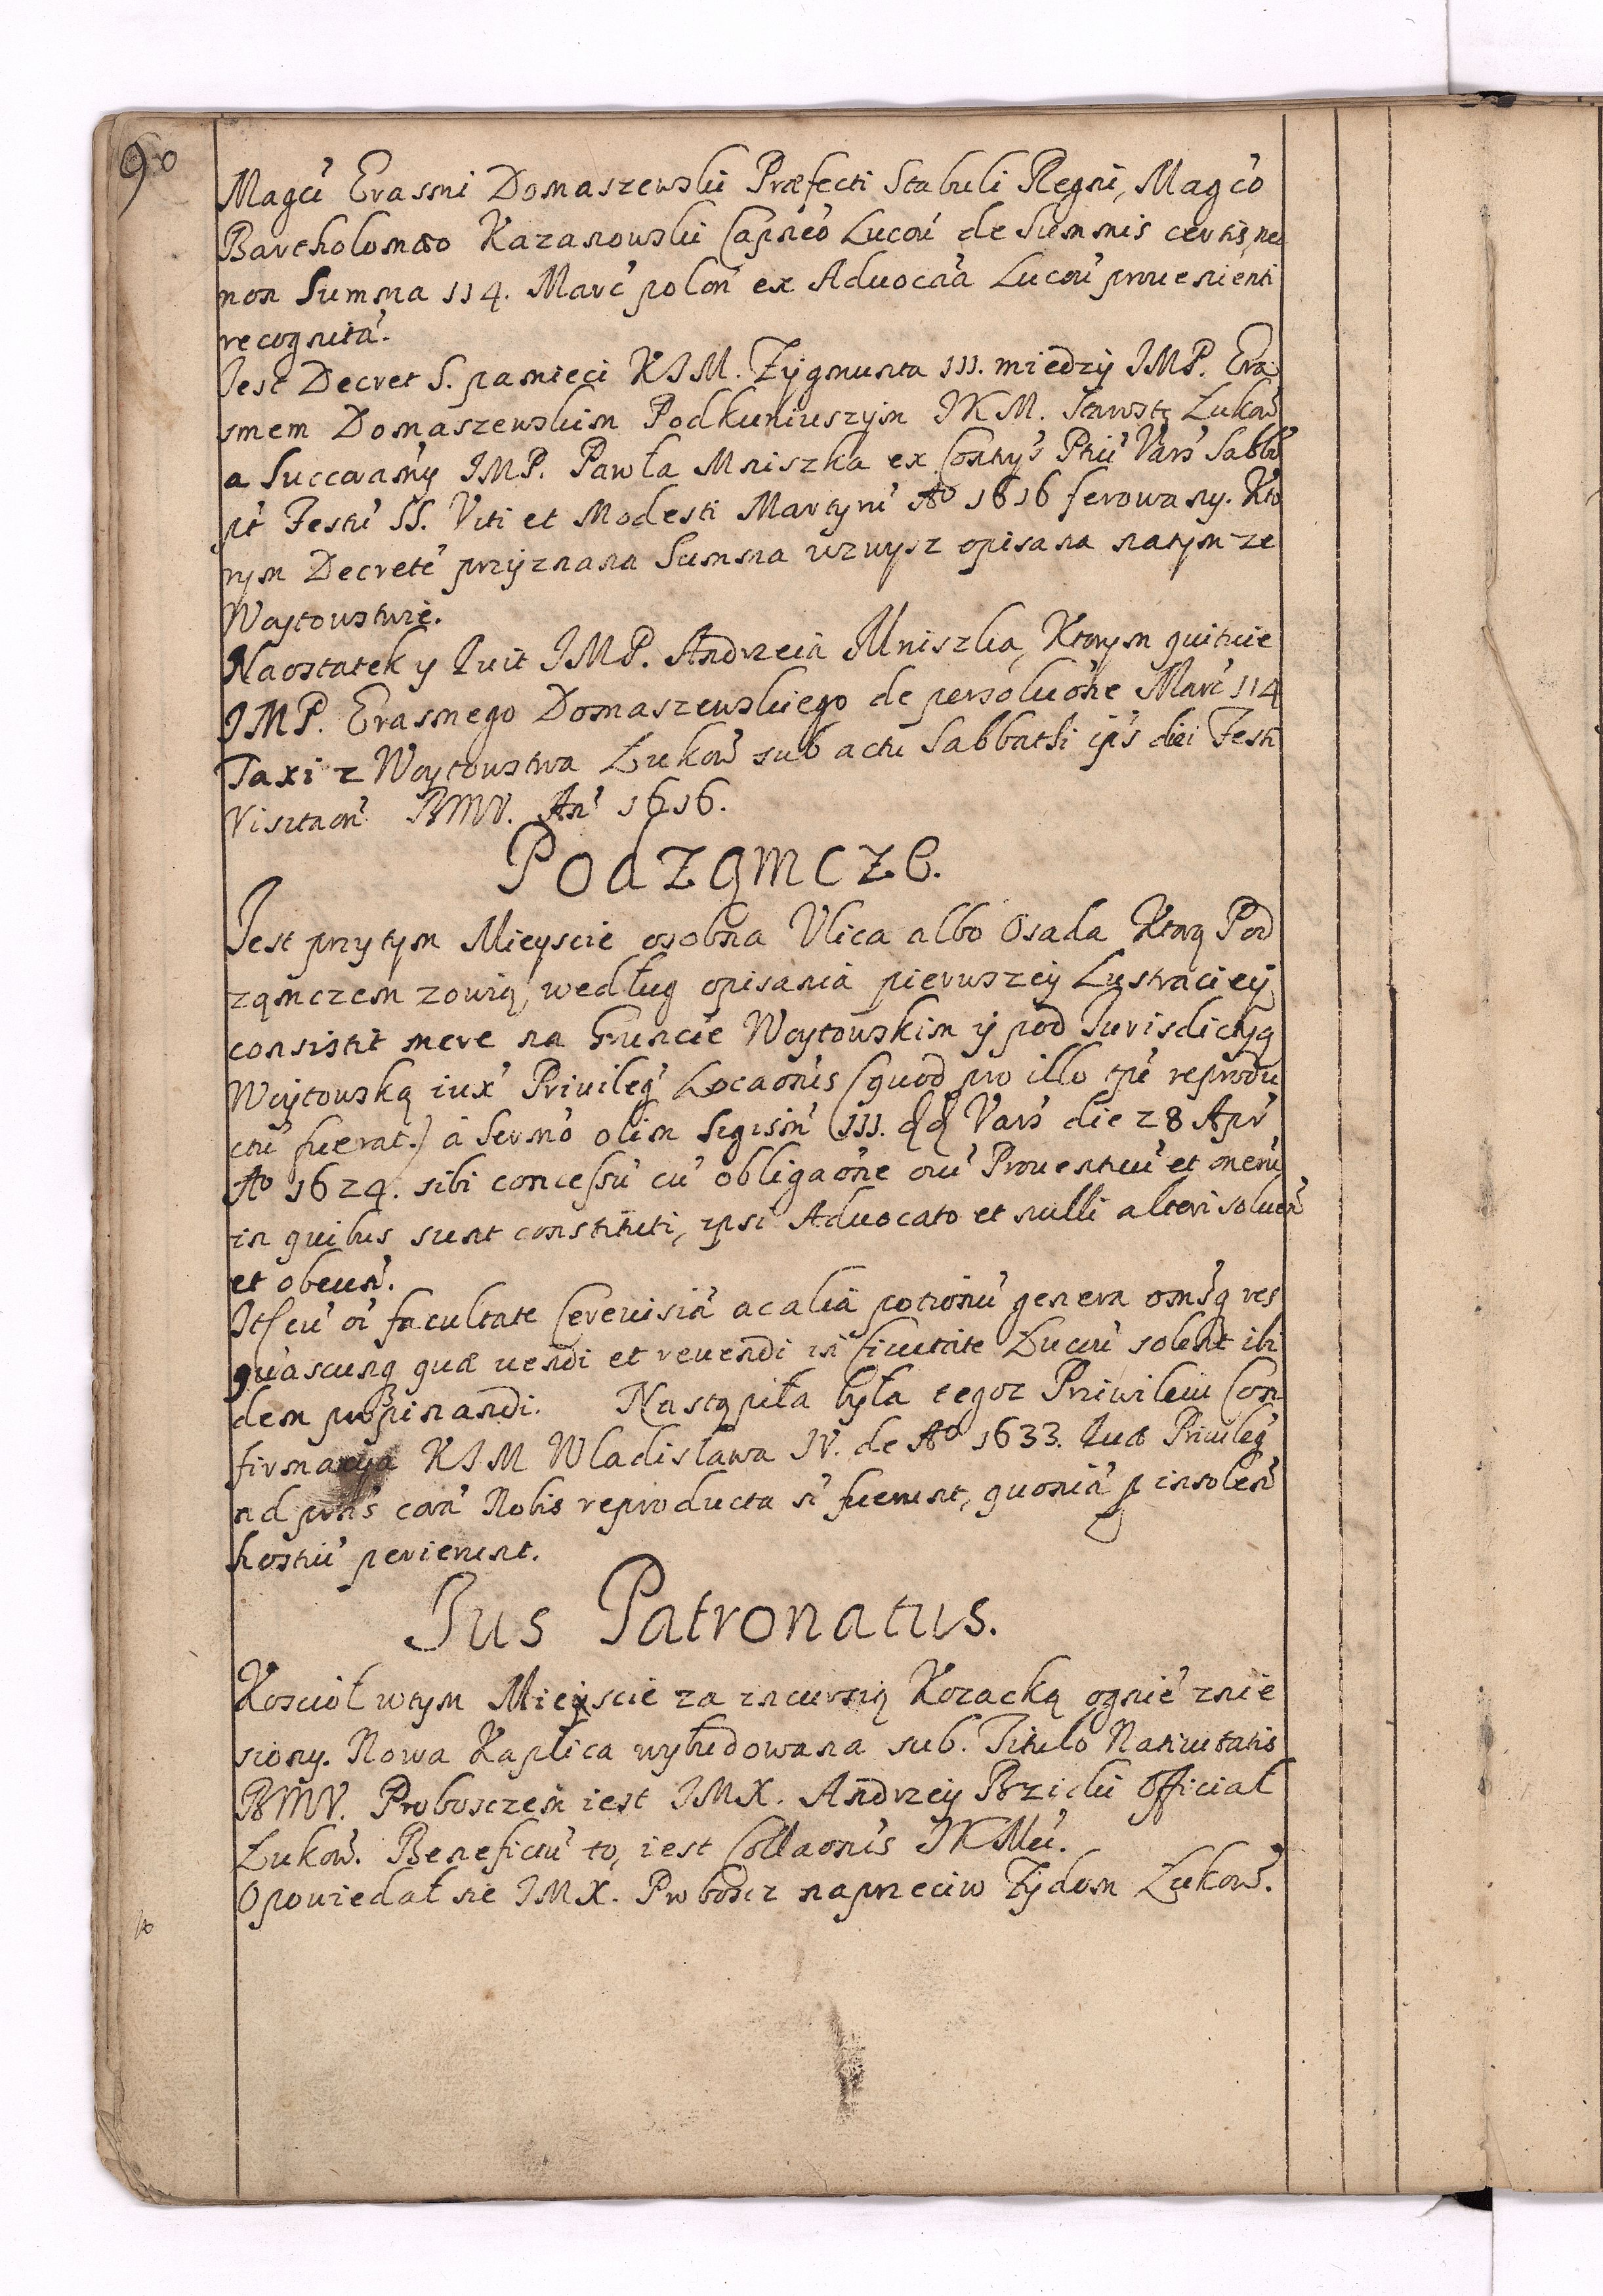 90
Magci Erasmi Domaszewski Præfecti Stabuli Regni, Magco
Bartholomæo Kazanowski Capneo Lucou de Summis certis, nec
non Summa 114. Marc polon ex Aduocaa Lucou prouenienti
recognita.
Jest Decret S. pamieci KJM. Zygmunta III. miedzy JMP. Era
smem Domaszewskim Podkuniuszym JKM. Starostą Lukow
a Succoramy JMP. Pawła Mniszka ex Contrys Ptiu Vars Sabbo
pt Festu SS. Viti et Modesti Martyru Ao 1616 ferowany. Kto
rym Decrete przyznana Summa wzwysz opisana natym ze
Woytowstwie.
Naostatek y Quit JMP. Andrzeia Mniszka, Ktorym quituie
JMP. Erasmego Domaszewskiego de persoluone Marc 114
Taxi z Woytowstwa Lukow sub actu Sabbathi ips diei Festi
Visitaon BMV. An 1616.
Podząmcze.
Jest przytym Mieyscie osobna Vlica albo Osada Ktorą Pod
ząmczem zowią, według opisania pierwszey Lustraciey
consistit mere na Gruncie Woytowskim y pod Jurisdictią
Woytowską iux Priuileg Locaonis (quod pro illo tpe reprodu
ctu fuerat.) a Sermo olim Sigism III. dd Vars die 28 Apr
Ao 1624. sibi concessu cu obligaone oiu Prouentuu et oneru
in quibus sunt constituti, ipsi Aduocato et nulli alteri soluen
et obeun.
Jt cu oi facultate Cereuisia ac alia potionu genera omsq res
quascunq quæ uendi et reuendi in Ciuitate Lucou solent ibi
dem propinandi. Nastąpiła była tegoz Priwileiu Con
firmacya KJM Wladislawa IV. de Ao 1633. Quæ Priuileg
ad prns cora Nobis reproducta n fuerunt, quonia p insolen
hostiu perierunt.
Jus Patronatus.
Kosciół wtym Mieyscie za incursią Kozacką ognie znie
siony. Nowa Kaplica wybudowana sub. Titulo Natiuitatis
BMV. Proboszczem iest JMX. Andrzey Brzicki Officiał
Lukow. Beneficiu to, iest Collaonis JKMci.
Opowiedał sie JMX. Probosz naprzeciw Zydom Lukow.